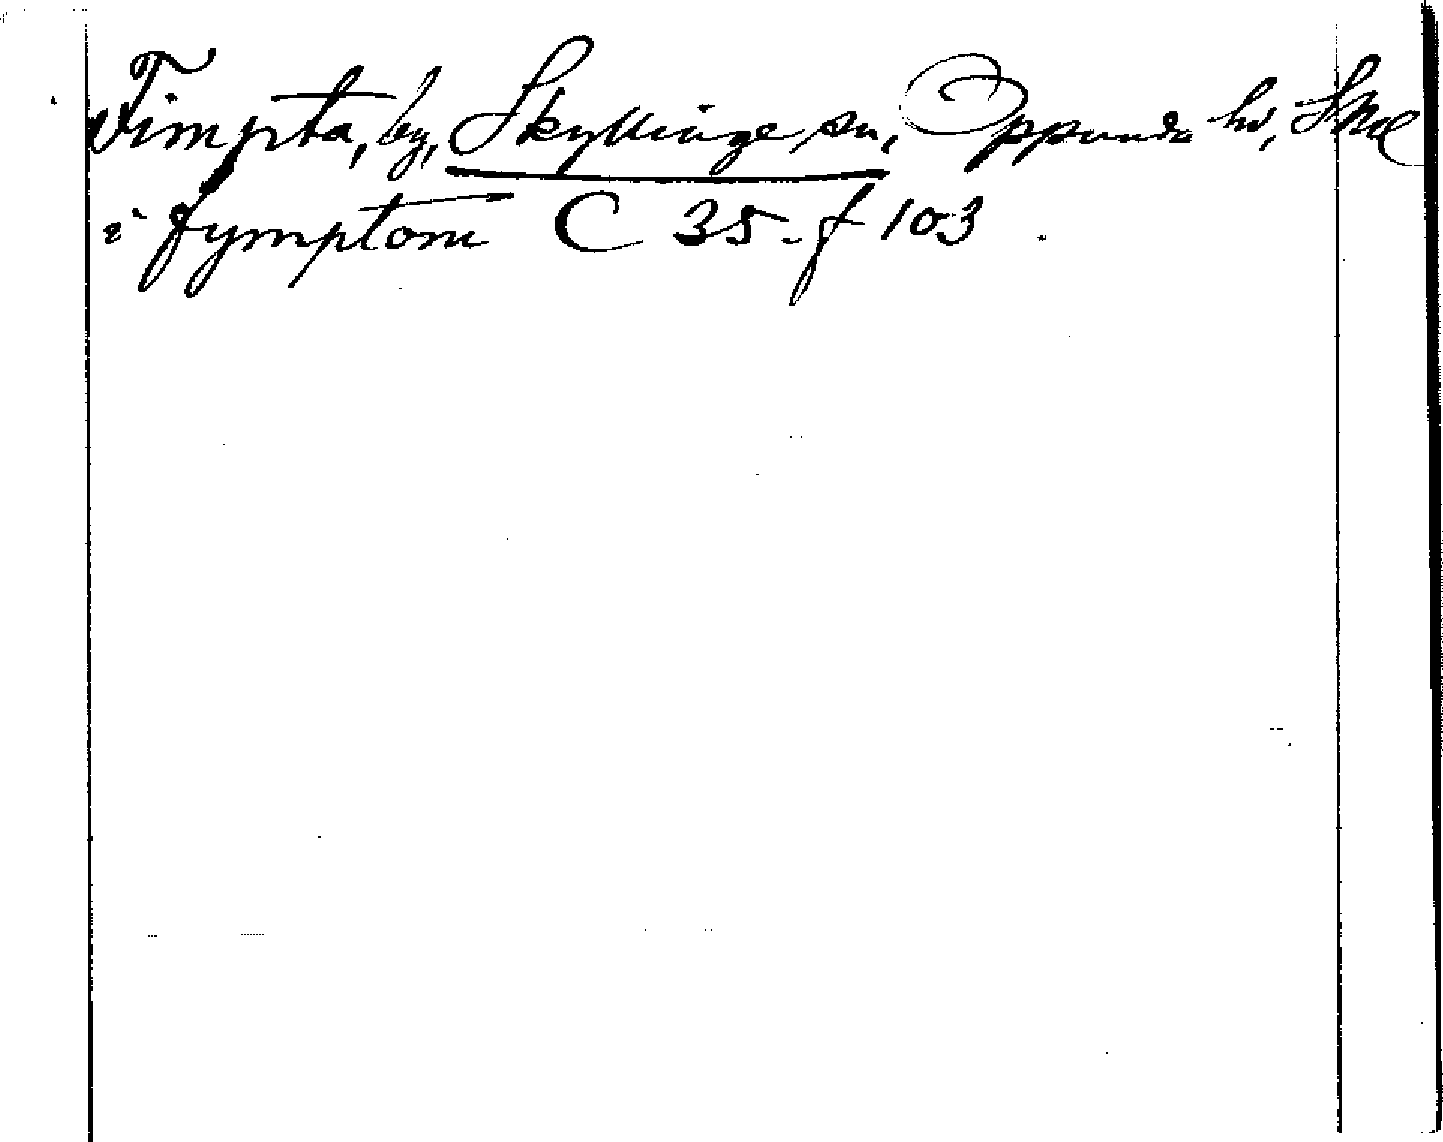 Timpta, by, Skyllinge sn, Oppunda hd, Skee
i fymptom C 35. f 103